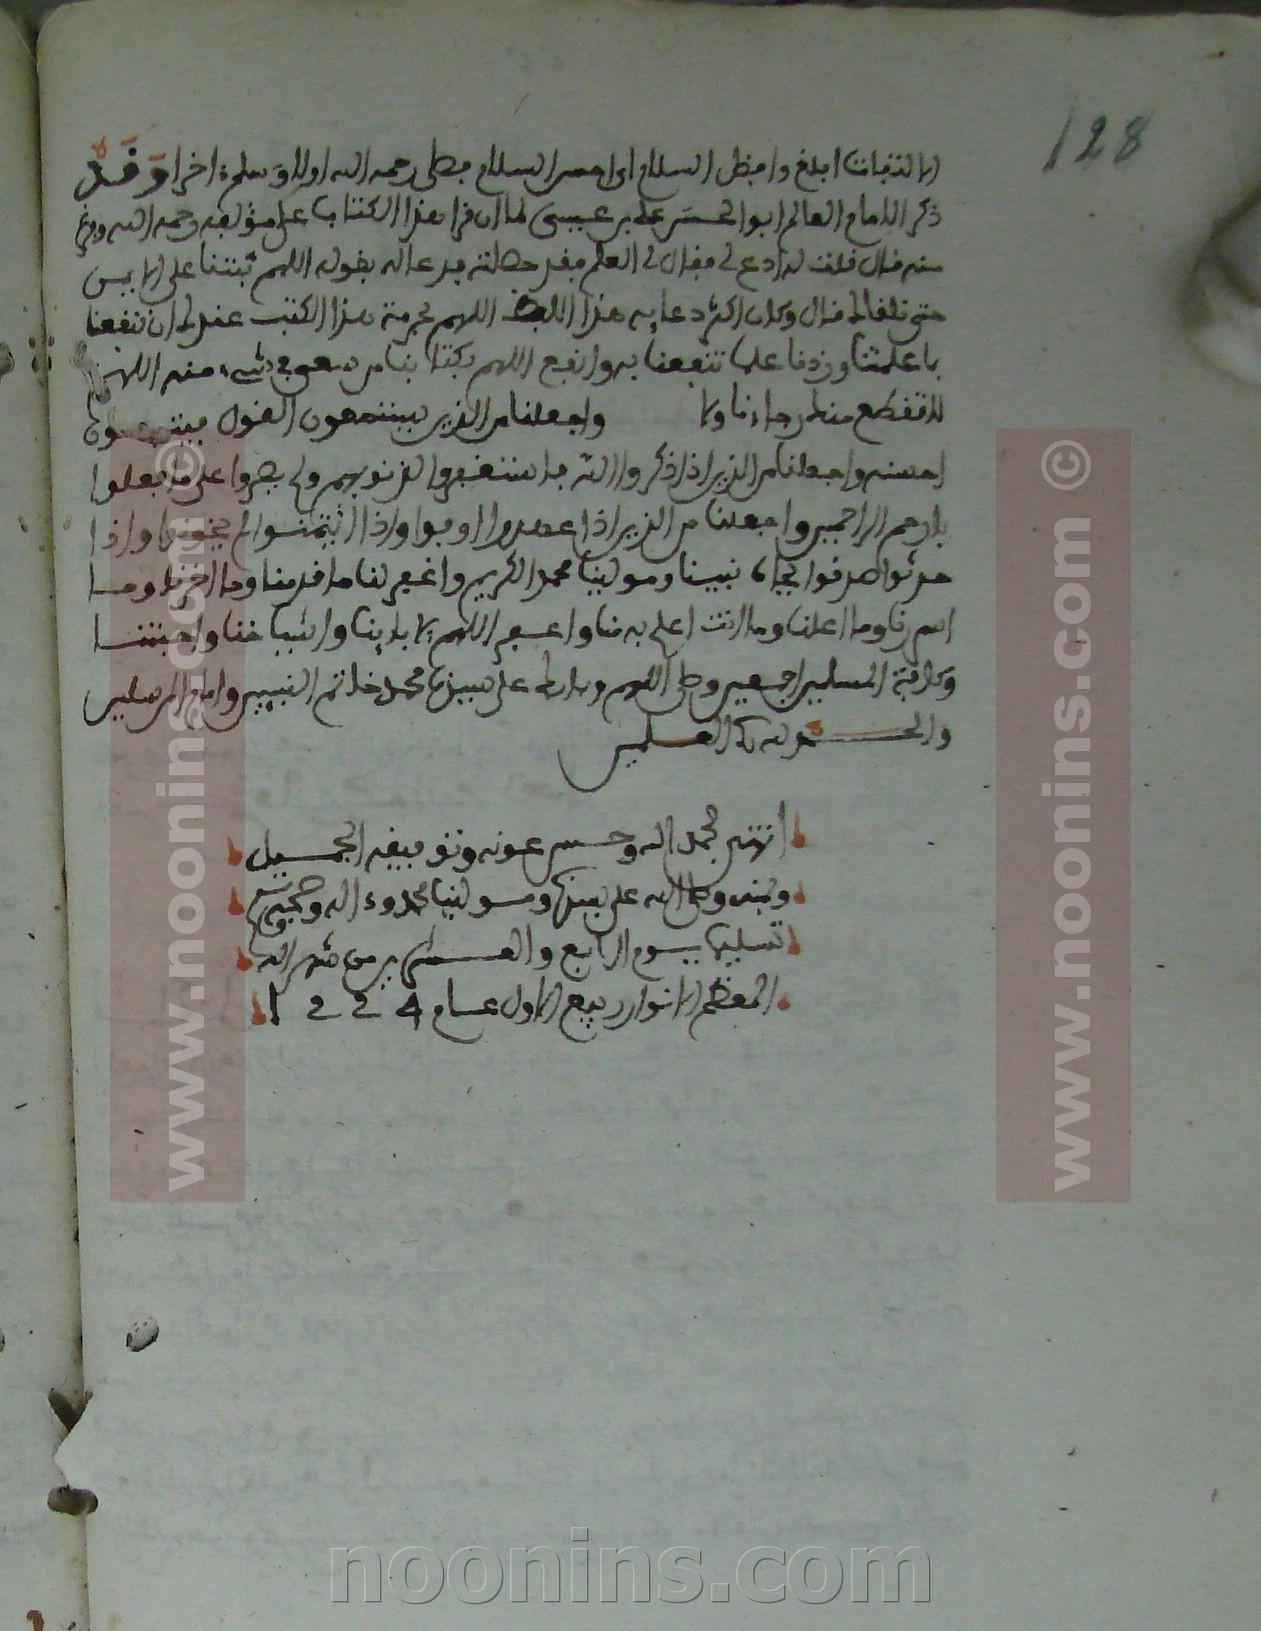 128
ابلغ وافضل السلام رحمه الله اولا وسلم اخرا وقد
ذكر الامام العالم ابو الحسن علي بن عيسى لما ان قرا هذا الكتاب على مؤلفه رحمه الله وفرغ
منه قال قلت له ادع لي فقال لي العلم فقد حصلته فدعا له بقوله اللهم ثبتنا على
حتى نلقاك قال وكان اكثر دعايه هذا اللفظ اللهم بحرمة هذا الكتب عندك ان تنفعنا
بما علمتنا وزدنا علما تنفعنا به وانفع اللهم بكتابنا من سعى في شيء منه اللهم
لا تقطع منك رجاءنا ولا واجعلنا من الذين يستمعون القول فيتبعون
احسنه واجعلنا من الذين اذا ذكروا الله فاستغفروا لذنوبهم ولم يصروا على ما فعلوا
يا ارحم الراحمين واجعلنا من الذين اذا عهدوا اوفوا واذا ائتمنوا لم يخونوا واذا
حدثوا صدقوا بجاه نبينا ومولينا محمد الكريم واغفر لنا ما قدمنا وما اخرنا وما
اسررنا وما اعلنا وما انت اعلم به منا واغفر اللهم لاباينا واشياخنا واحبتنا
وكافة المسلمين اجمعين وصلى اللهم وبارك على سيدنا محمد خاتم النبيين وامام المرسلين
والحمد لله رب العلمين
انتهى بحمد الله وحسن عونه وتوفيقه الجميل
ويمنه وصلى الله على سيدنا ومولينا محمد وءاله وصحبه وسلم
تسليما يوم الرابع والعشرين من شهر الله
المعظم الانوار ربيع الاول عام 1224
www.noonins.com ©
www.noonins.com ©
noonins.com